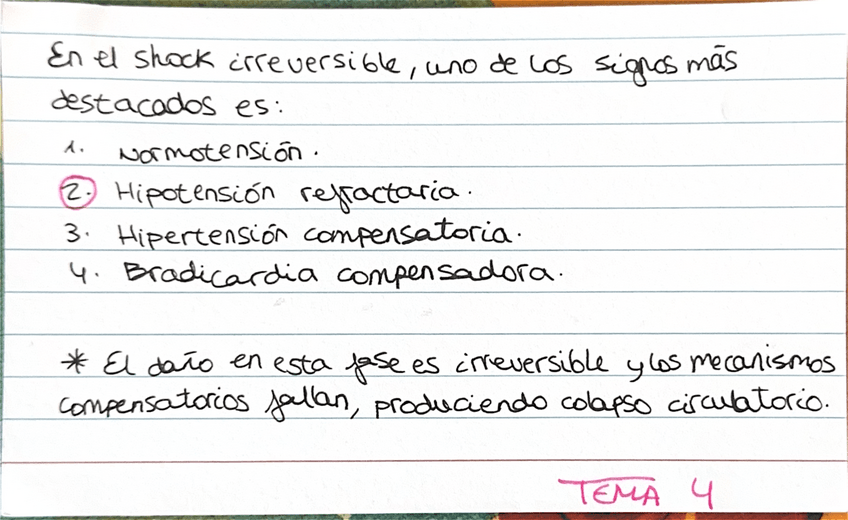 En el shock irreversible, uno de los signos más
destacados es:
1. Normotensión.
2. Hipotensión refractaria.
3. Hipertensión compensatoria.
4. Bradicardia compensadora.
* El daño en esta fase es irreversible y los mecanismos
compensatorios fallan, produciendo colapso circulatorio.
TEMA 4